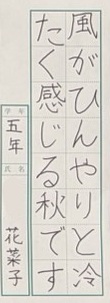 風がひんやりと冷
たく感じる秋です
学年
五年
氏名
花菜子